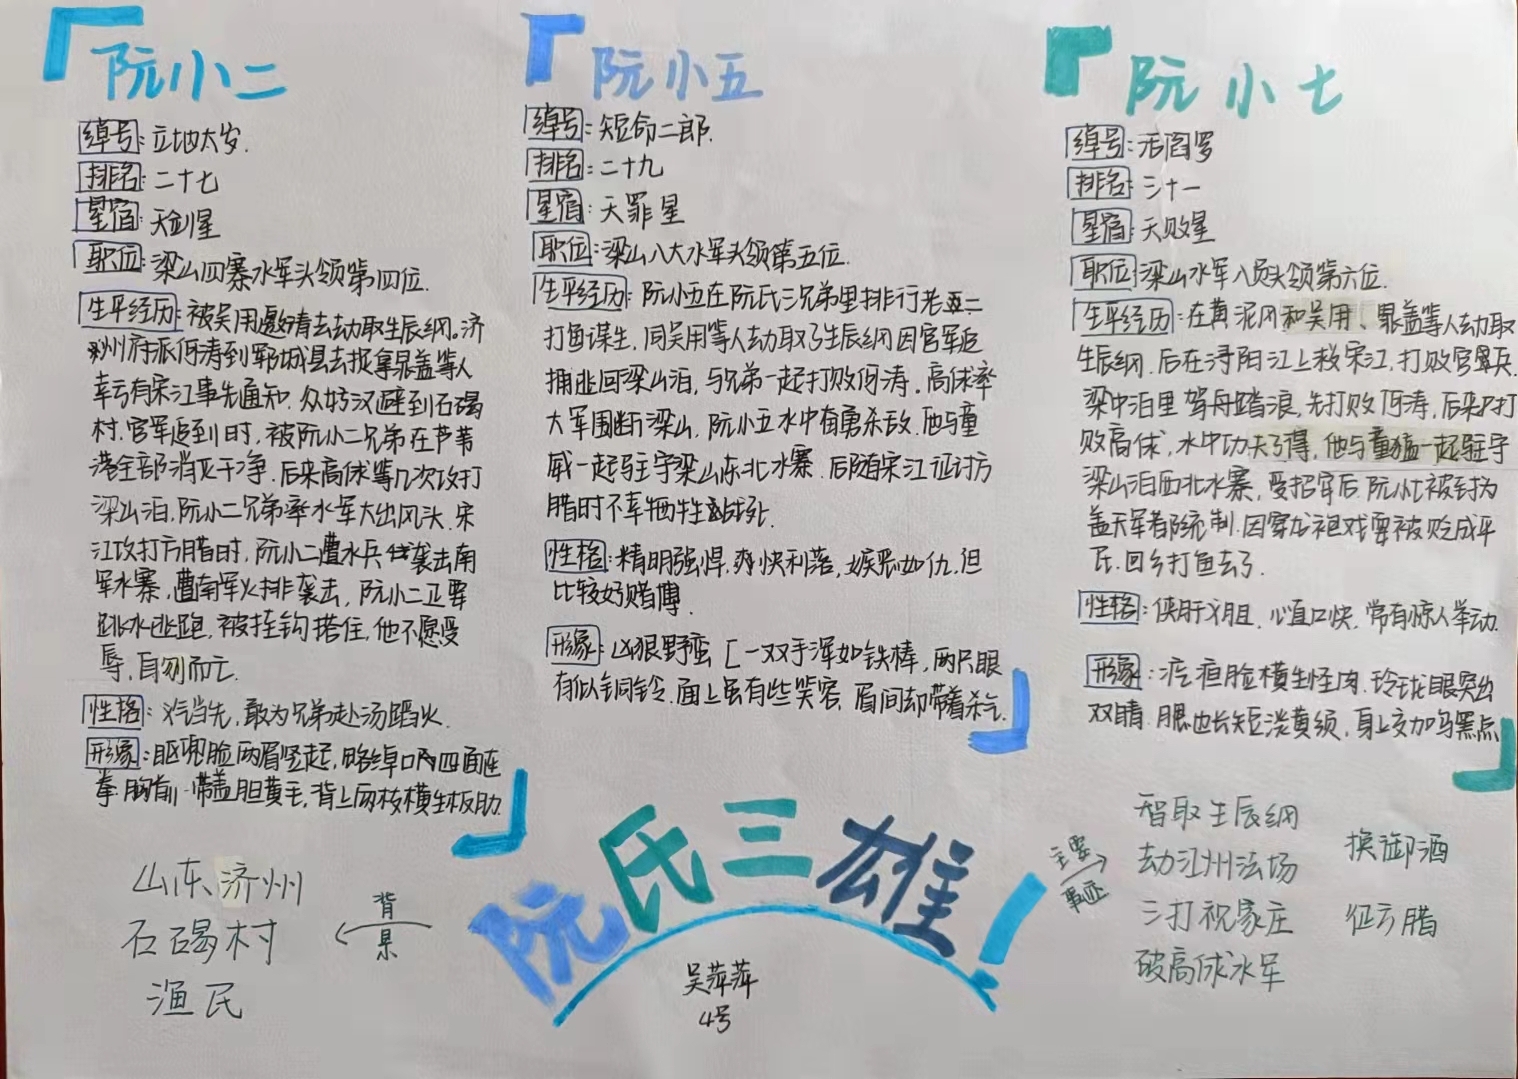 阮小二
绰号：立地太岁.
排名：二十七
星宿：天剑星
职位：梁山四寨水军头领第四位.
生平经历：被吴用邀请去劫取生辰纲。济
州府派何涛到郓城县去捉拿晁盖等人
幸亏有宋江事先通知.众好汉避到石碣
村.官军追到时,被阮小二兄弟在芦苇
港全部消灭干净.后来高俅等几次攻打
梁山泊.阮小二兄弟率水军大出风头.宋
江攻打方腊时,阮小二遭水兵袭击南
军水寨,遭南军火排袭击,阮小二正要
跳水逃跑,被挂钩搭住,他不愿受
辱,自刎而亡.
性格：义气当先,敢为兄弟赴汤蹈火.
形象：眍兜脸两眉竖起,略绰口四面连
拳.胸前一带盖胆黄毛,背上两枝横生板肋.
阮小五
绰号：短命二郎.
排名：二十九
星宿：天罪星
职位：梁山八大水军头领第五位.
生平经历：阮小五在阮氏三兄弟里排行老二
打鱼谋生,同吴用等人劫取了生辰纲因官军追
捕逃回梁山泊,与兄弟一起打败何涛.高俅率
大军围断梁山,阮小五水中奋勇杀敌.他与童
威一起驻守梁山东北水寨.后随宋江征讨方
腊时不幸牺牲战死.
性格：精明强悍,爽快利落,嫉恶如仇,但
比较好赌博.
形象：凶狠野蛮[一双手浑如铁棒,两只眼
有似铜铃.面上虽有些笑容,眉间却带着杀气.
阮小七
绰号：活阎罗
排名：三十一
星宿：天败星
职位：梁山水军八员头领第六位.
生平经历：在黄泥冈和吴用、晁盖等人劫取
生辰纲.后在浔阳江上救宋江,打败官兵.
梁中泊里驾舟踏浪,先打败何涛,后来又打
败高俅,水中功夫了得,他与童猛一起驻守
梁山泊西北水寨,受招安后阮小七被封为
盖天军都统制.因穿龙袍戏耍被贬成平
民.回乡打鱼去了.
性格：侠肝义胆,心直口快.常有惊人举动.
形象：疙疸脸横生怪肉,玲珑眼突出
双睛.腮边长短淡黄须,身上交加乌黑点
阮氏三雄!
吴萍萍
4号
背景
山东济州
石碣村
渔民
主要事迹
智取生辰纲
劫江州法场
三打祝家庄
破高俅水军
换御酒
征方腊